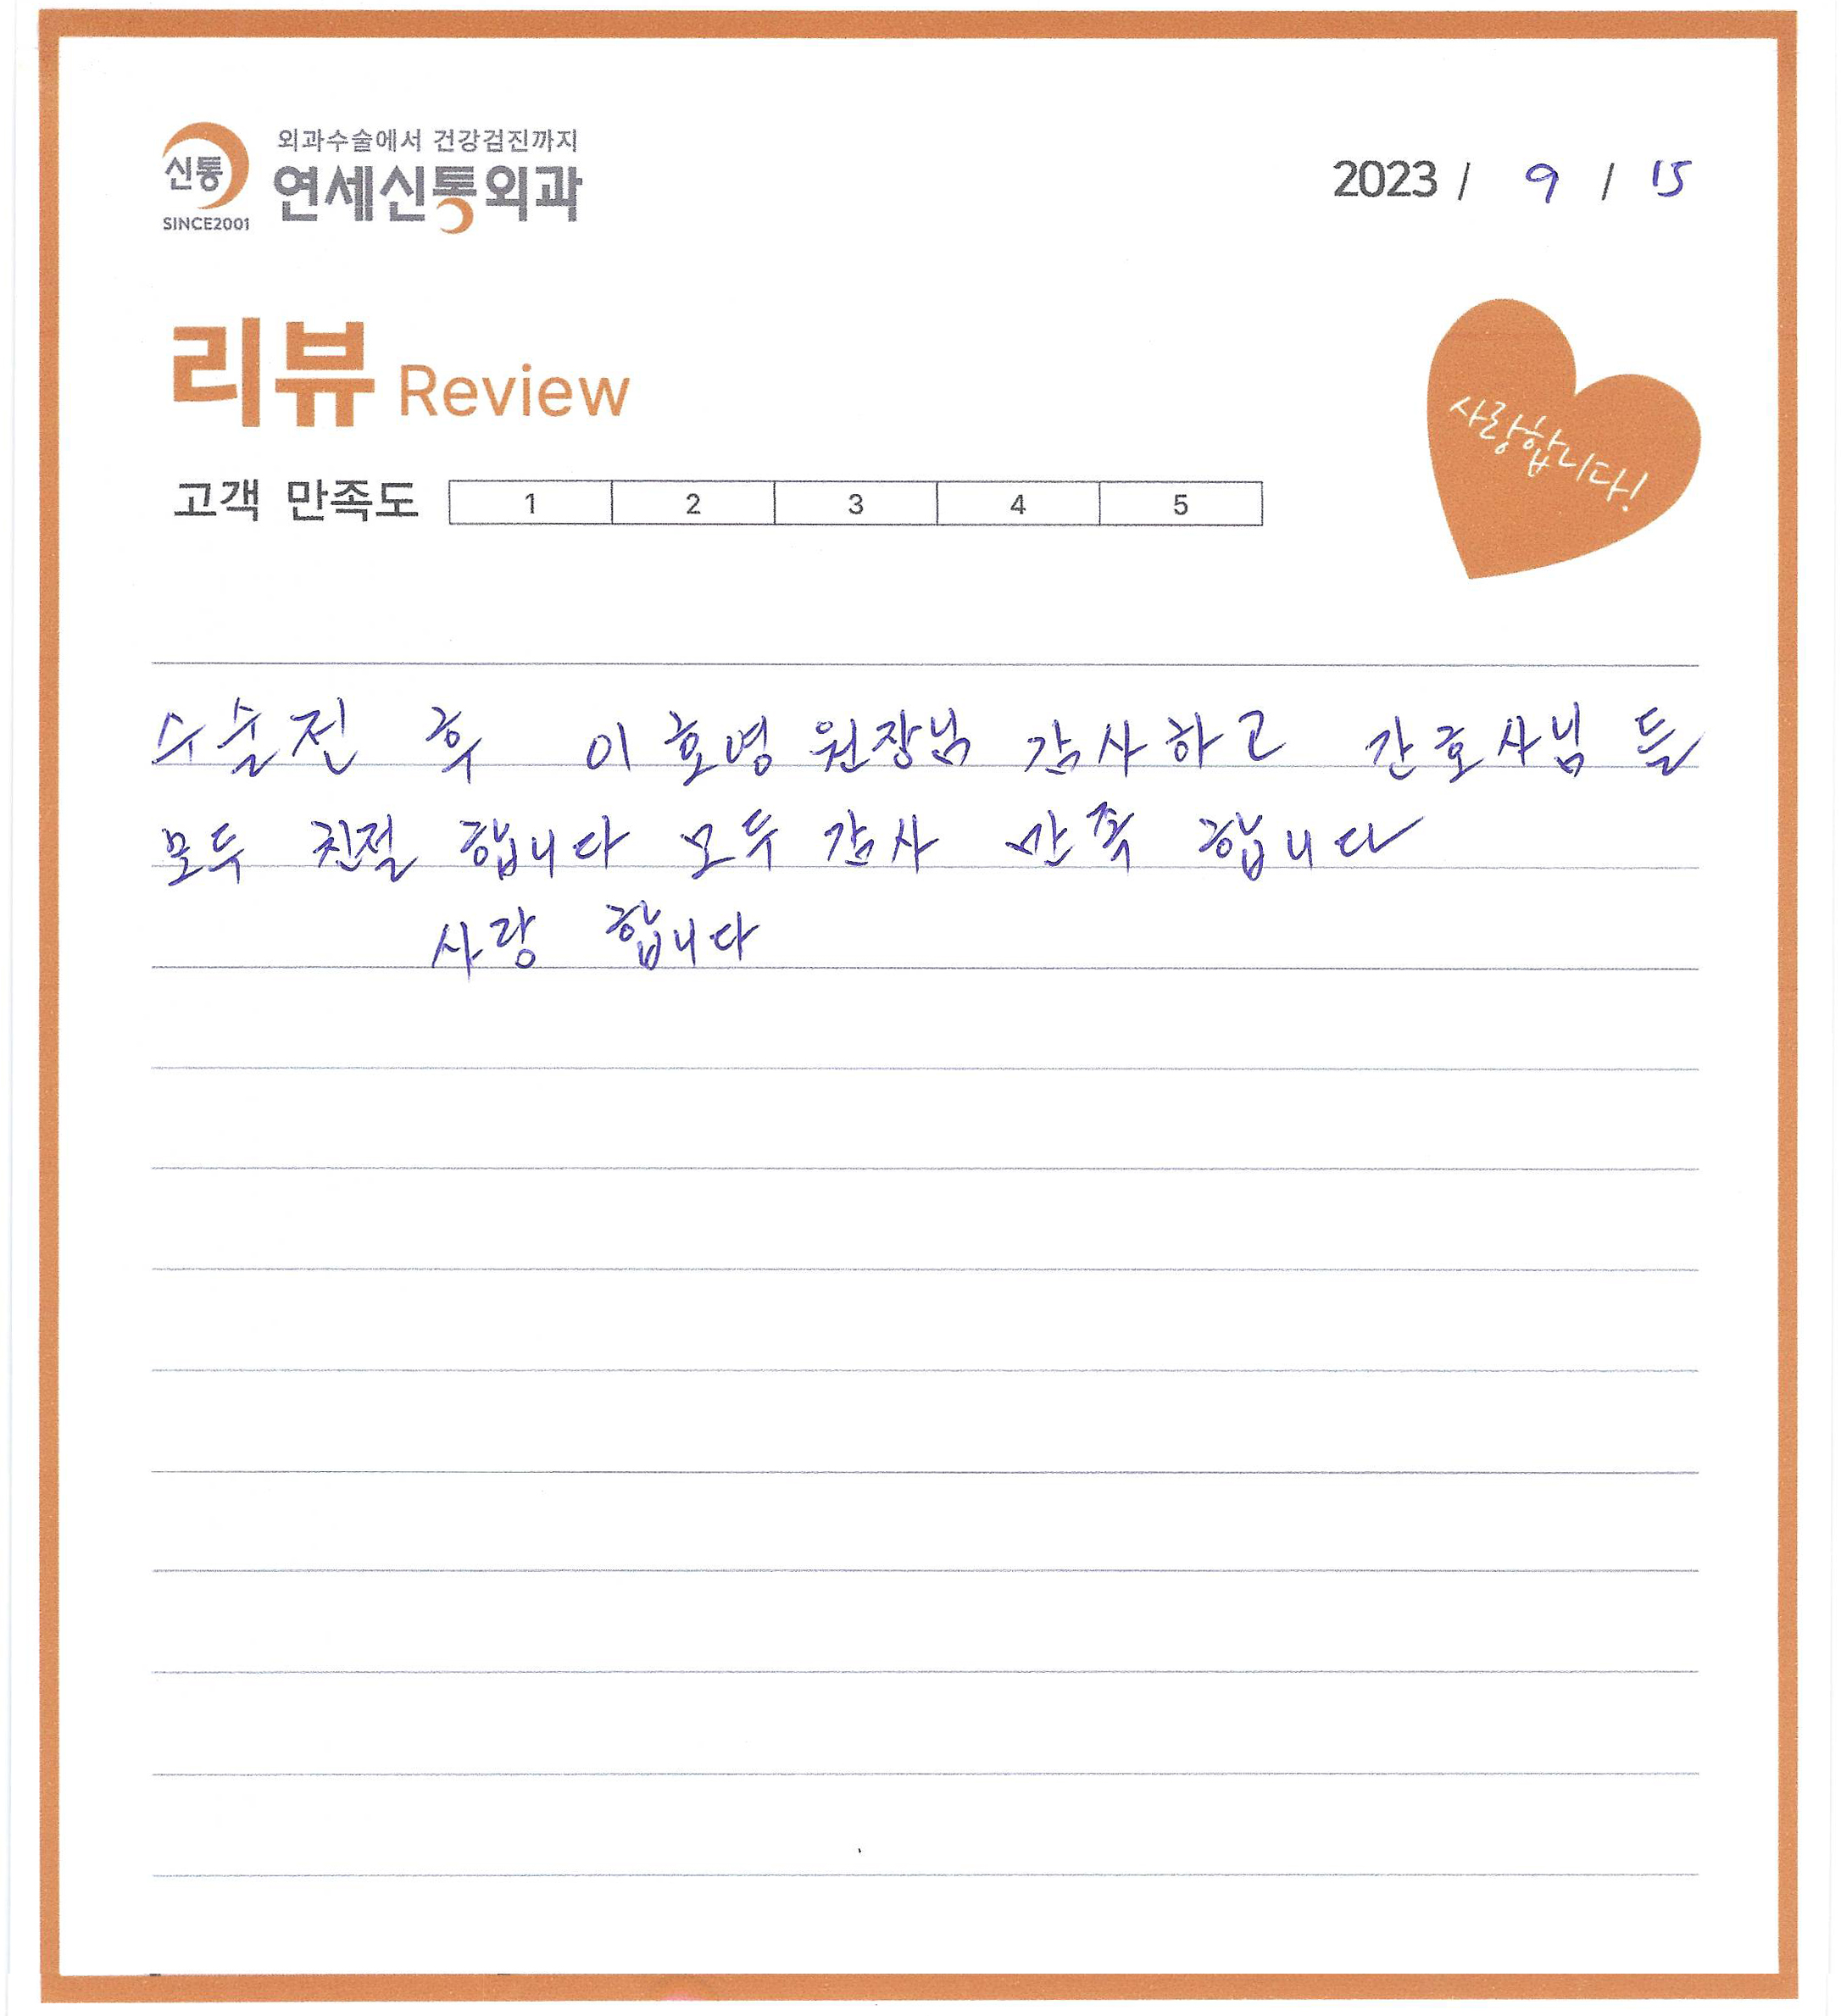 외과수술에서 건강검진까지
신통 연세신통외과
SINCE2001
2023 / 9 / 15
리뷰 Review
사랑합니다!
고객 만족도 1 2 3 4 5
수술전 후 이호영 원장님 감사하고 간호사님 들
모두 친절 합니다 모두 감사 만족 합니다
사랑 합니다